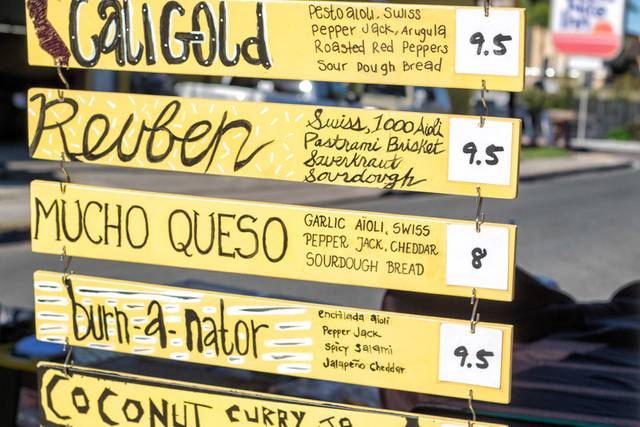 CaliGold
Pesto aioli, Swiss
Pepper Jack, Arugula
Roasted Red Peppers
Sour Dough Bread
9.5
Reuben
Swiss, 1000 Aioli
Pastrami Brisket
Sauerkraut
Sourdough
9.5
MUCHO QUESO
GARLIC AÏOLI, SWISS
PEPPER JACK, CHEDDAR
SOURDOUGH BREAD
8
burn-a-nator
enchilada aioli
Pepper Jack
Spicy Salami
Jalapeño Cheddar
9.5
COCONUT CURRY